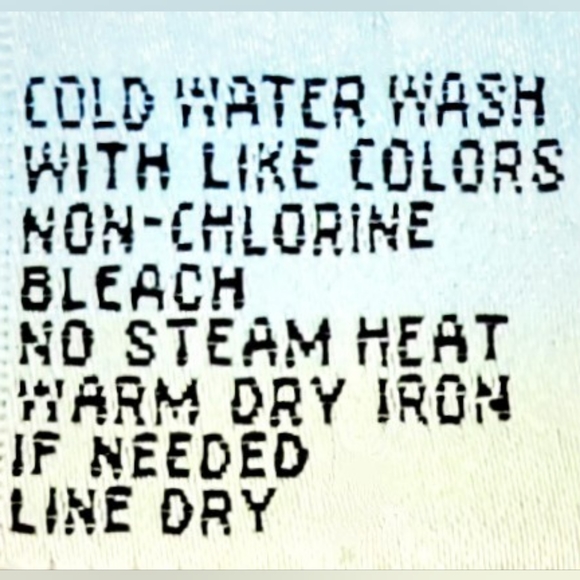 COLD WATER WASH
WITH LIKE COLORS
NON-CHLORINE
BLEACH
NO STEAM HEAT
WARM DRY IRON
IF NEEDED
LINE DRY